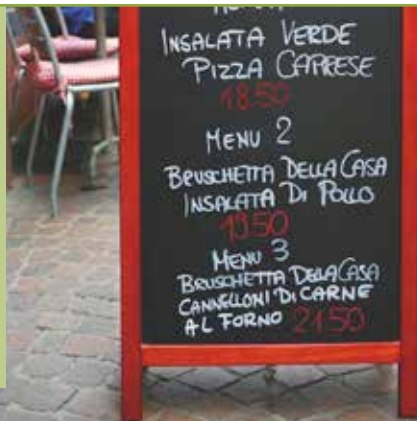 INSALATA VERDE
PIZZA CAPRESE
18.50
MENU 2
BRUSCHETTA DELLA CASA
INSALATA DI POLLO
19.50
MENU 3
BRUSCHETTA DELLA CASA
CANNELLONI DI CARNE
AL FORNO 21.50